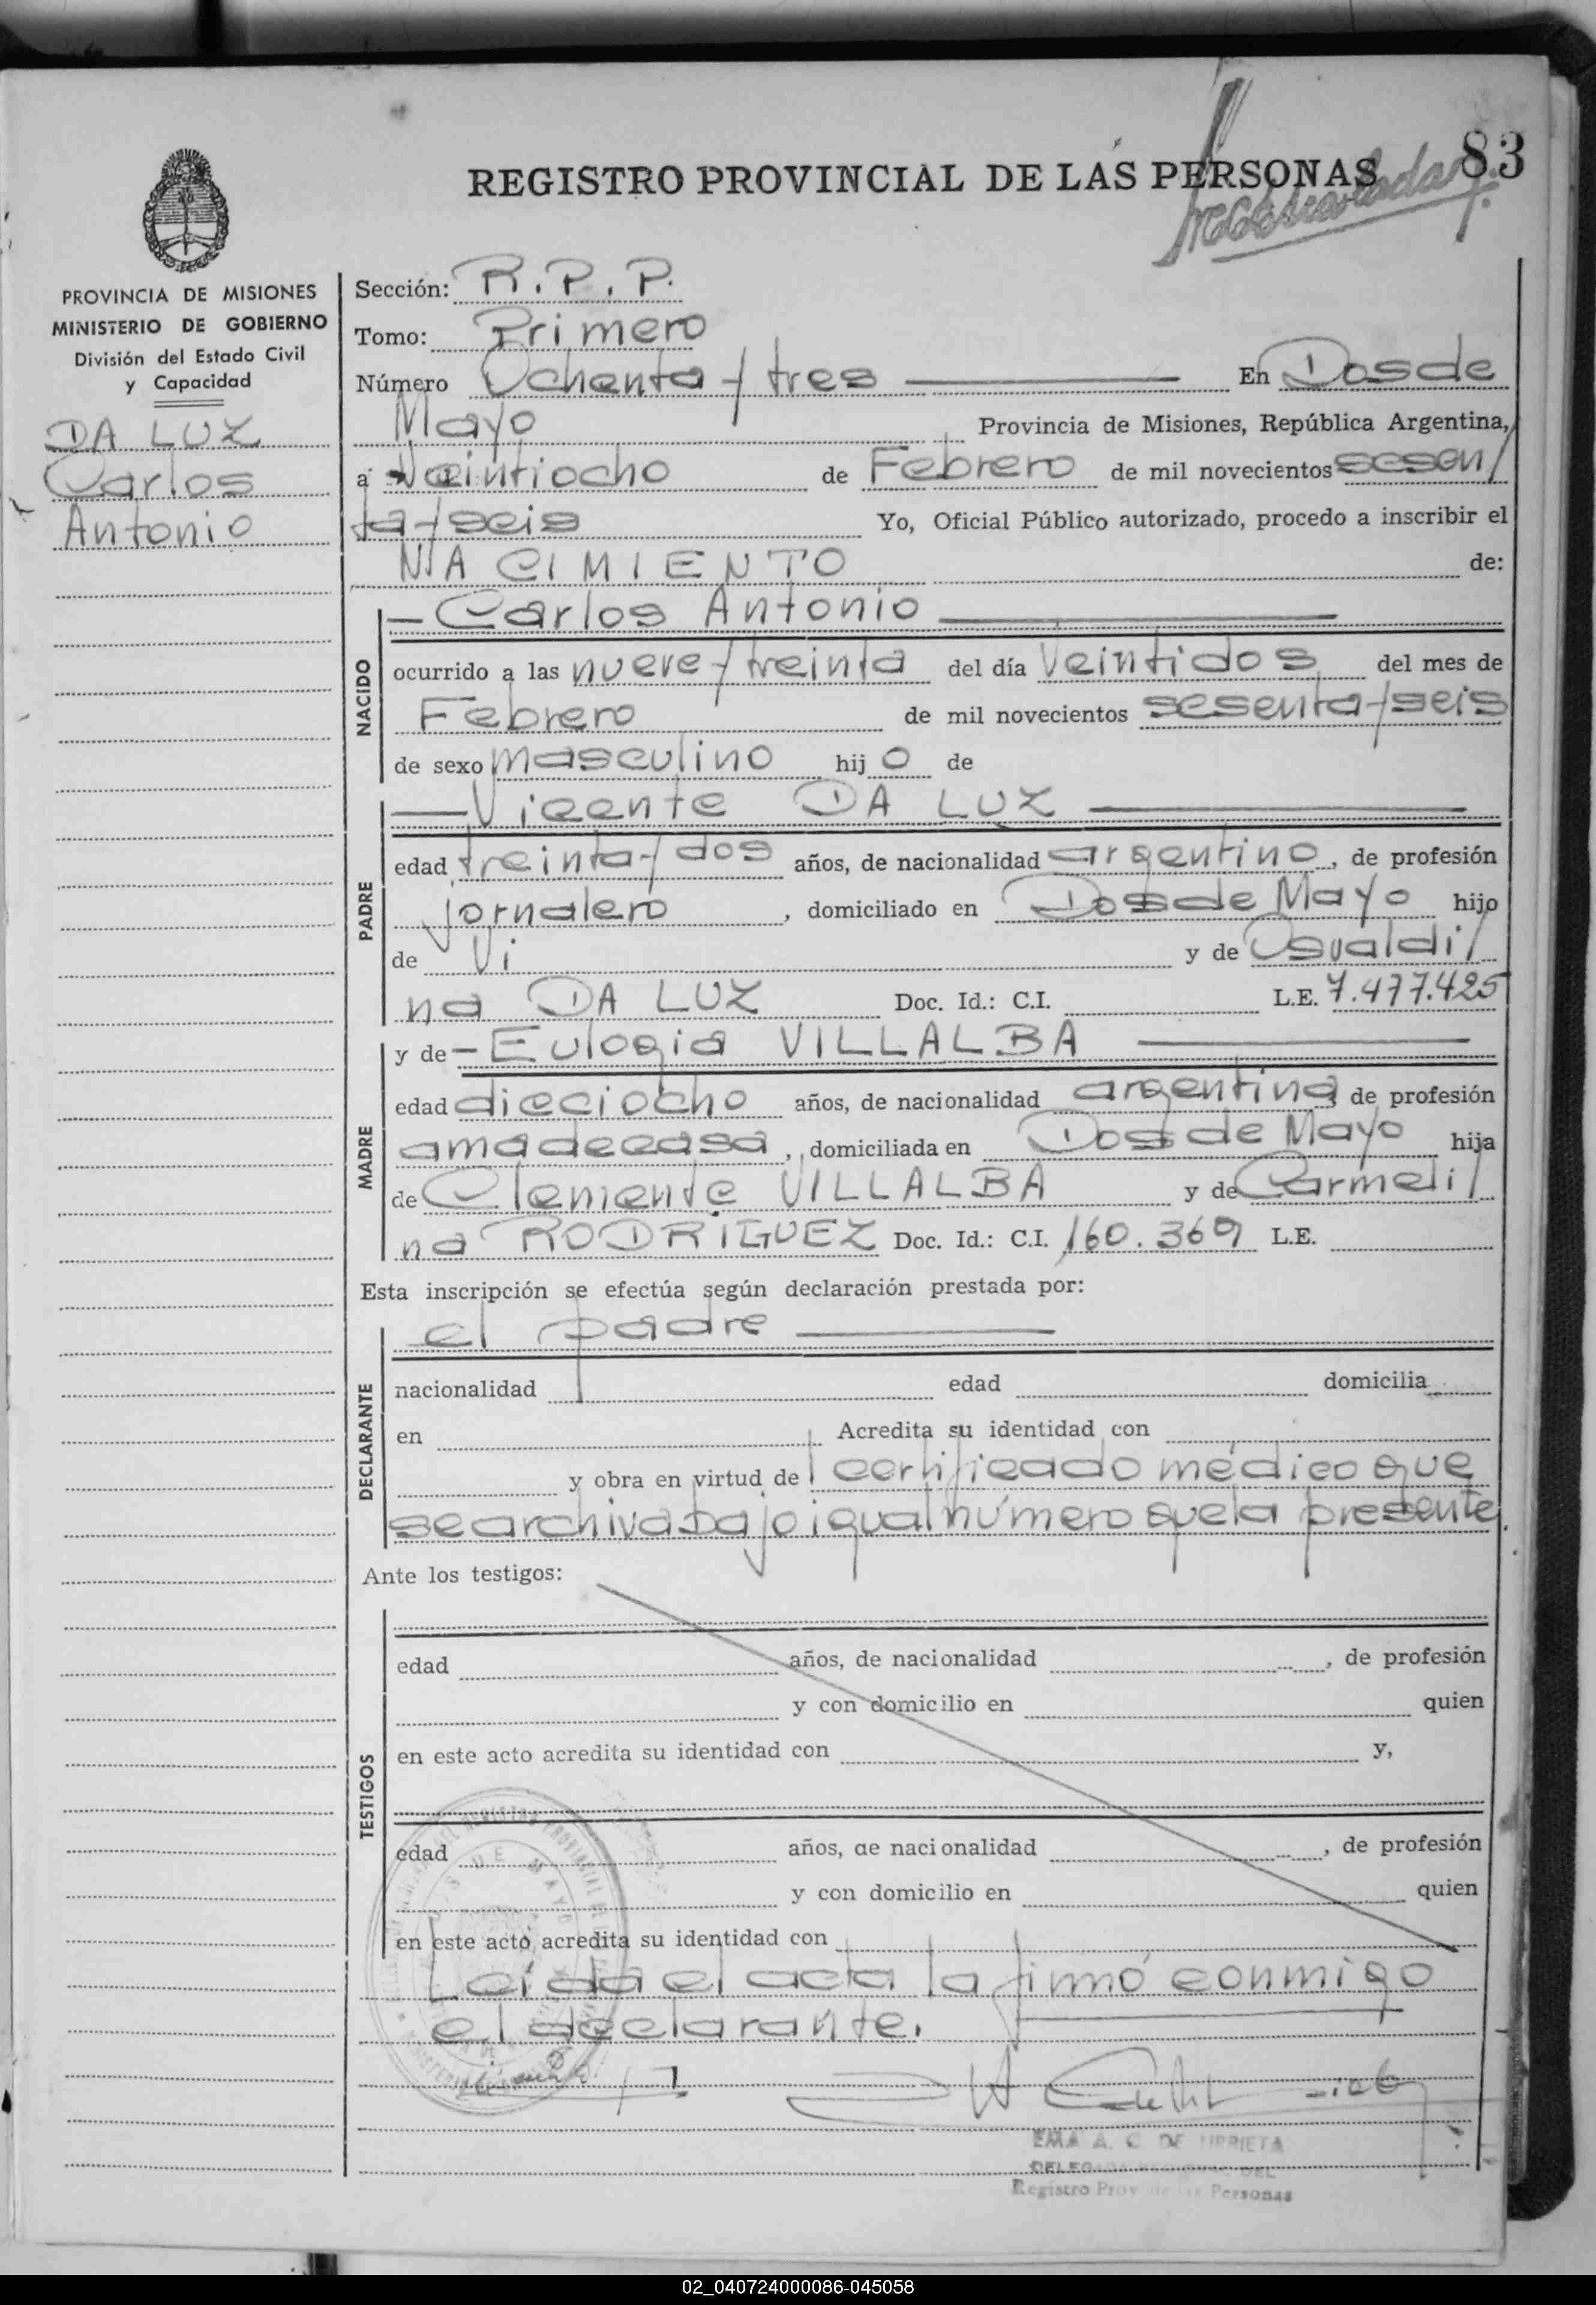 83
REGISTRO PROVINCIAL DE LAS PERSONAS
PROVINCIA DE MISIONES
MINISTERIO DE GOBIERNO
División del Estado Civil
y Capacidad
DA LUZ
Carlos
Antonio
Sección: R.P.P.
Tomo: Primero
Número Ochenta y tres En Dos de
Mayo Provincia de Misiones, República Argentina,
a Veintiocho de Febrero de mil novecientos sesen/
ta y seis Yo, Oficial Público autorizado, procedo a inscribir el
NACIMIENTO de:
NACIDO
Carlos Antonio
ocurrido a las nueve y treinta del día veintidos del mes de
Febrero de mil novecientos sesenta y seis
de sexo masculino hij o de
PADRE
Vicente DA LUZ
edad treinta y dos años, de nacionalidad argentino, de profesión
jornalero, domiciliado en Dos de Mayo hijo
de Vi y de Osvaldi/
na DA LUZ Doc. Id.: C.I. L.E. 7.477.425
MADRE
y de Eulogia VILLALBA
edad dieciocho años, de nacionalidad argentina de profesión
ama de casa, domiciliada en Dos de Mayo hija
de Clemente VILLALBA y de Carmeli/
na RODRIGUEZ Doc. Id.: C.I. 160.369 L.E.
Esta inscripción se efectúa según declaración prestada por:
DECLARANTE
el padre
nacionalidad edad domicilia
en Acredita su identidad con
y obra en virtud de certificado médico que
se archiva bajo igual número que la presente.
Ante los testigos:
TESTIGOS
edad años, de nacionalidad , de profesión
y con domicilio en quien
en este acto acredita su identidad con y,
edad años, de nacionalidad , de profesión
y con domicilio en quien
en este acto acredita su identidad con
Leída el acta la firmó conmigo
el declarante.
EMA A. C. DE URRIETA
Registro Prov de las Personas
02_040724000086-045058